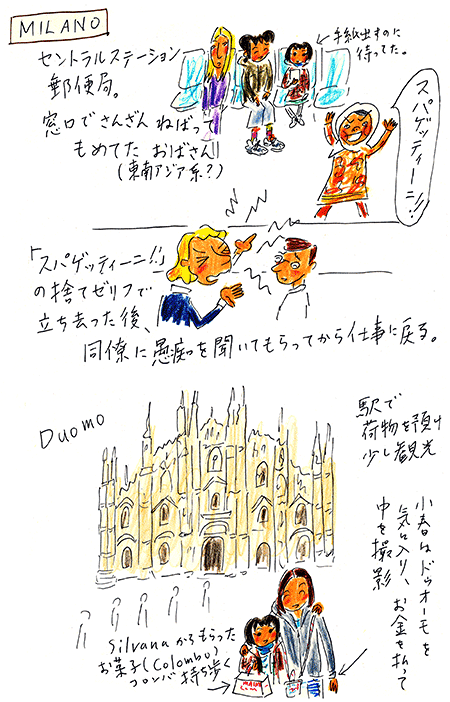 MILANO
セントラルステーション
郵便局。
窓口でさんざん ねばって
もめてた おばさん!!
(東南アジア系?)
手紙出すのに
待ってた。
スパゲッティーニ!!
「スパゲッティーニ!!」
の捨てゼリフで
立ち去った後、
同僚に愚痴を聞いてもらってから仕事に戻る。
Duomo
駅で
荷物を預け
少し観光
小春はドゥオーモを
気に入り、お金を払って
中を撮影
Silvanaからもらった
お菓子(Colombo)
コロンバ 持ち歩く